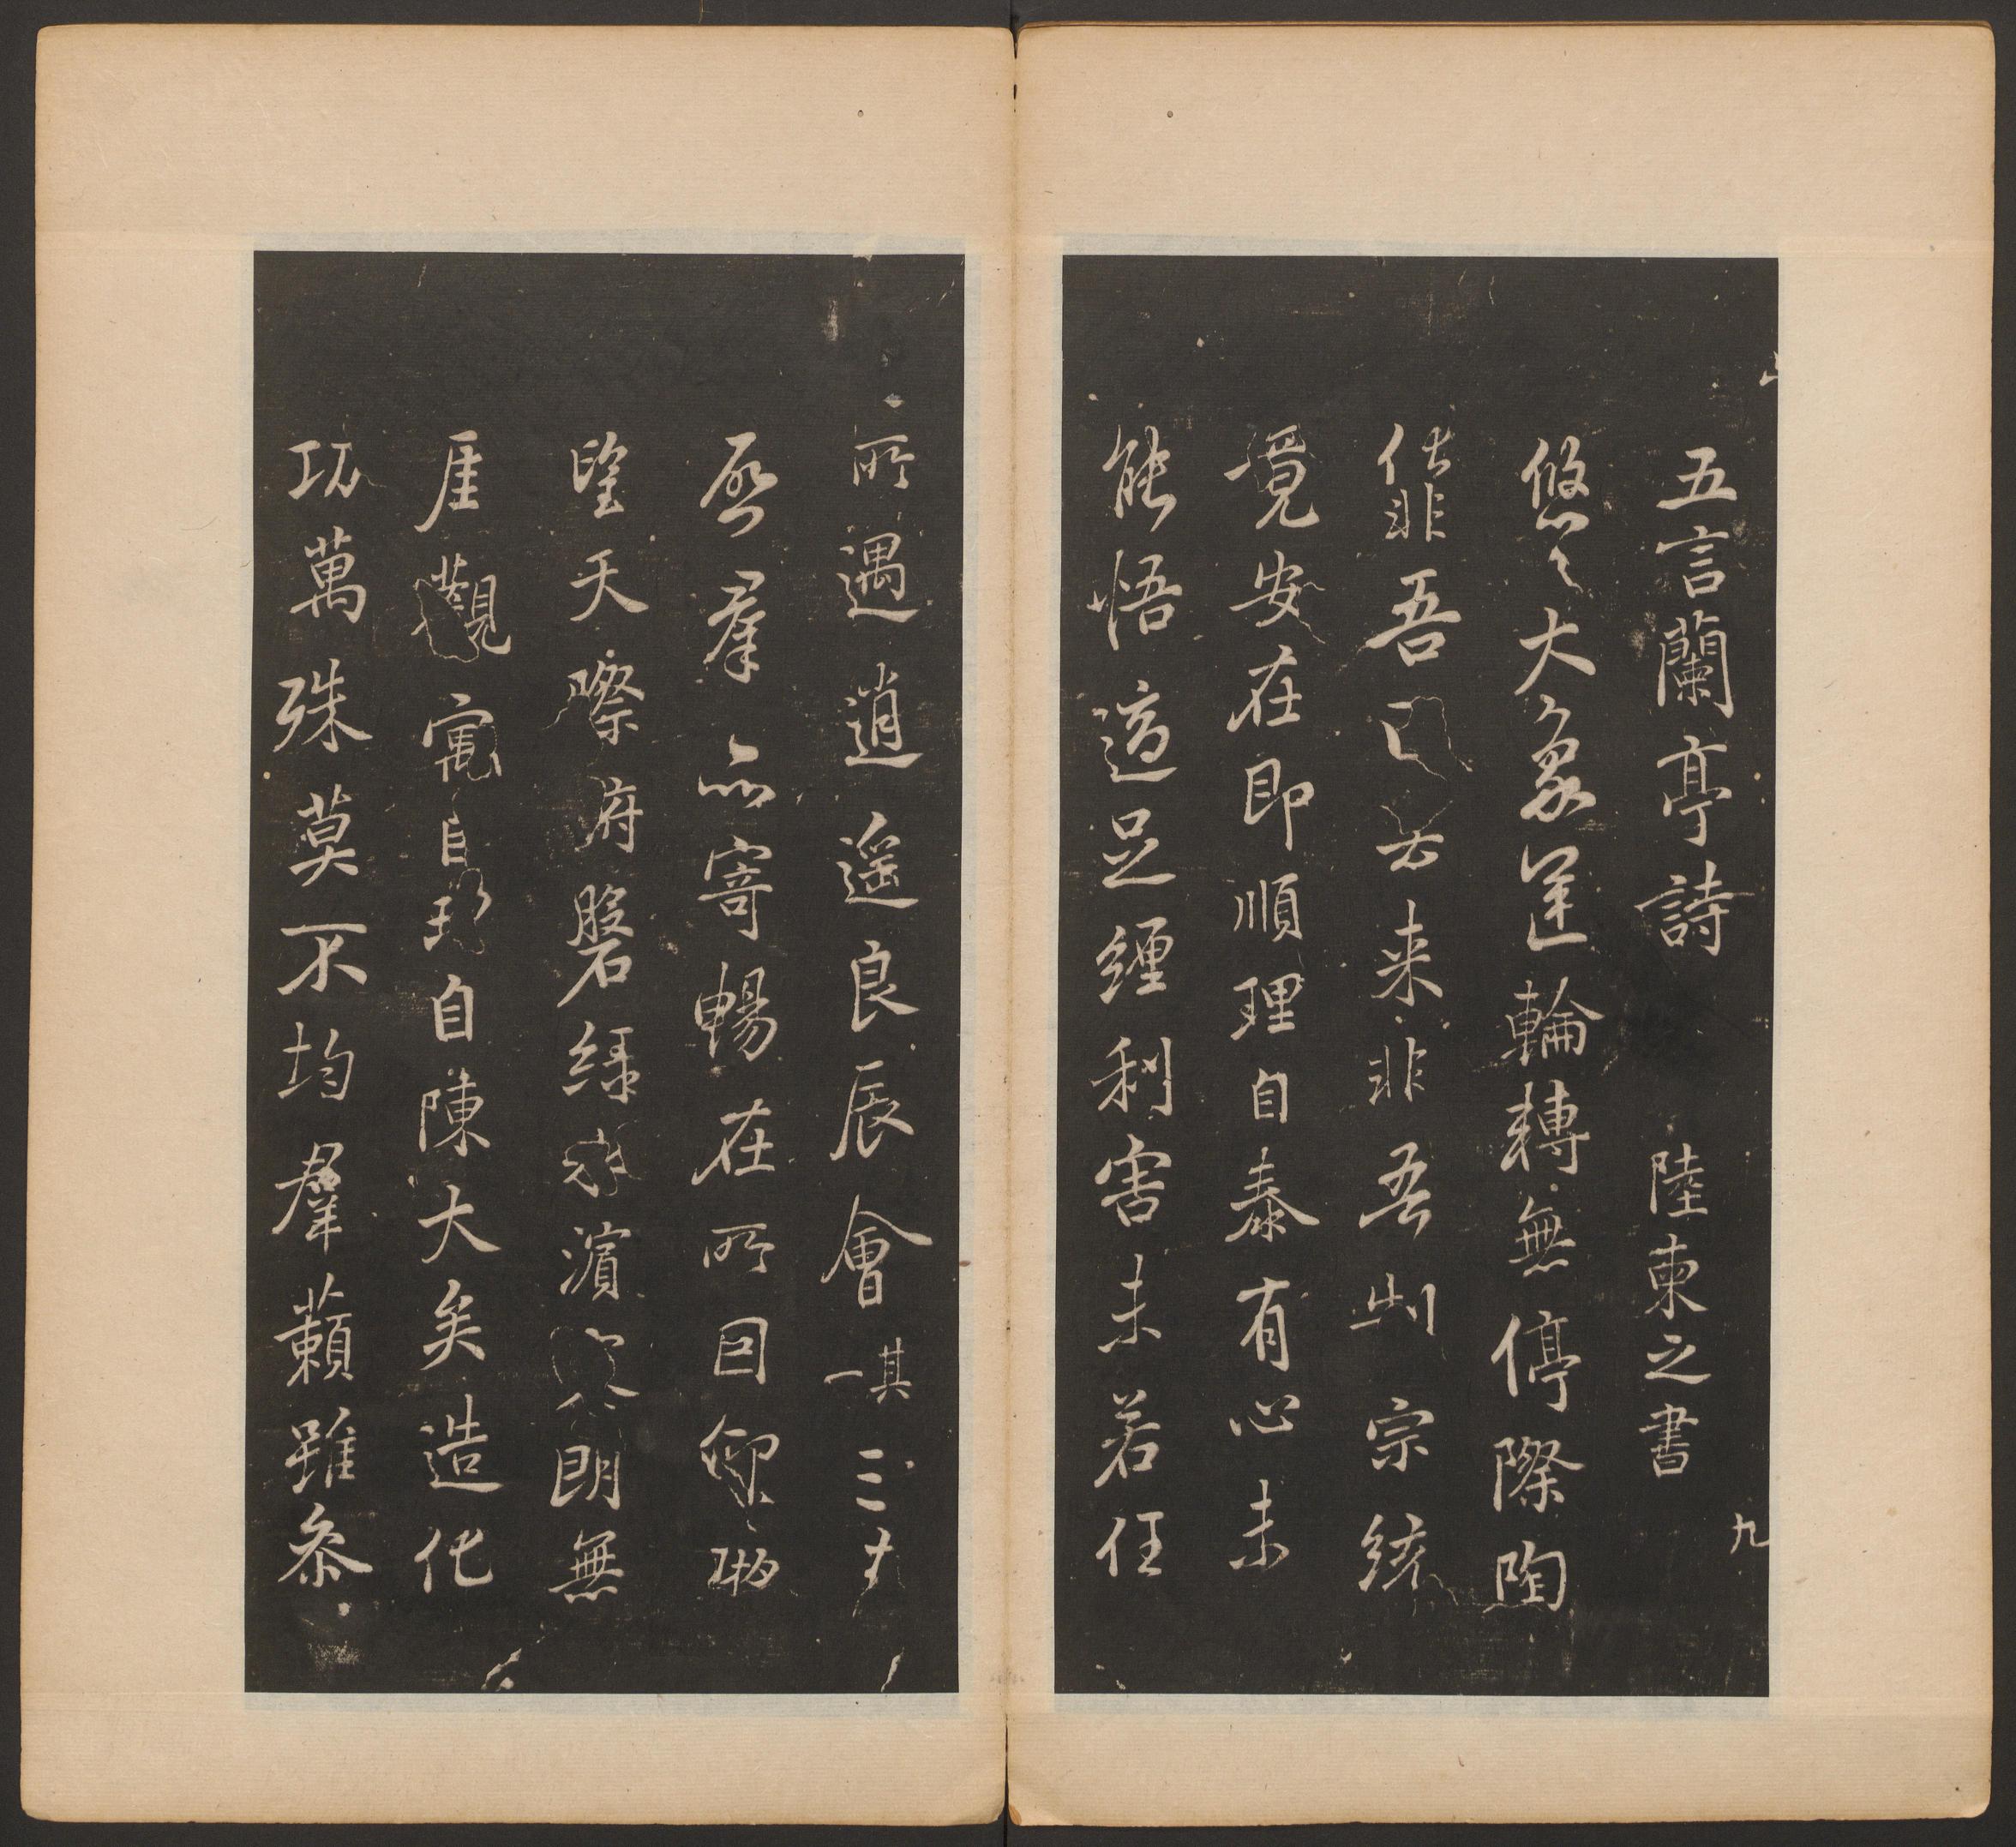 五言蘭亭詩 陸柬之書
九
悠々大象運輪轉無停際陶
化非吾因去来非吾制宗統
竟安在即順理自泰有心未
能悟適足纏利害未若任
所遇逍遥良辰會其一三春
啓羣品寄暢在所因仰眺
望天際府磐緑水濱寥朗無
厓觀寓目理自陳大矣造化
功萬殊莫不均羣籟雖叅